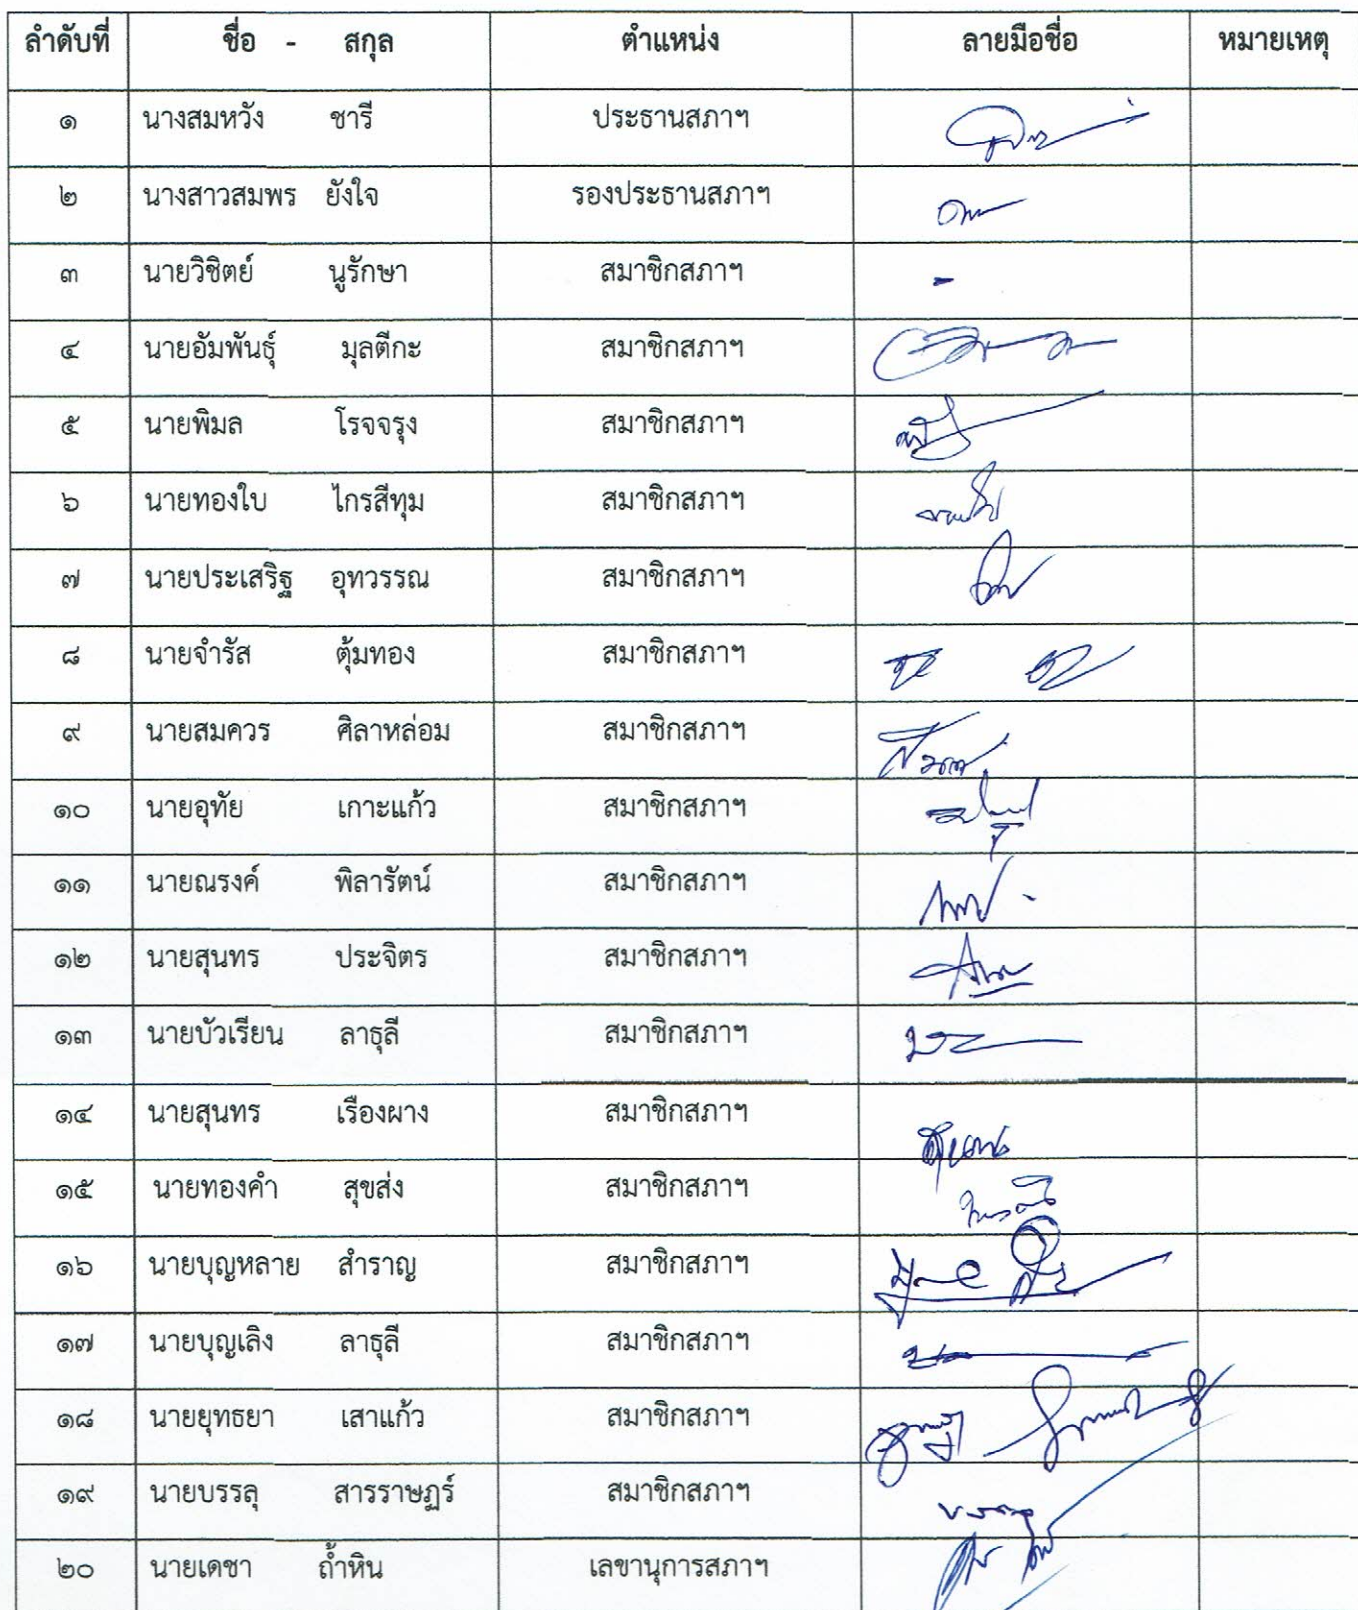 ลำดับที่ ชื่อ - สกุล ตำแหน่ง ลายมือชื่อ หมายเหตุ
๑ นางสมหวัง ชารี ประธานสภาฯ
๒ นางสาวสมพร ยังใจ รองประธานสภาฯ
๓ นายวิชิตย์ นูรักษา สมาชิกสภาฯ -
๔ นายอัมพันธุ์ มุลตีกะ สมาชิกสภาฯ
๕ นายพิมล โรจจรุง สมาชิกสภาฯ
๖ นายทองใบ ไกรสีทุม สมาชิกสภาฯ
๗ นายประเสริฐ อุทวรรณ สมาชิกสภาฯ
๘ นายจำรัส ตุ้มทอง สมาชิกสภาฯ
๙ นายสมควร ศิลาหล่อม สมาชิกสภาฯ
๑๐ นายอุทัย เกาะแก้ว สมาชิกสภาฯ
๑๑ นายณรงค์ พิลารัตน์ สมาชิกสภาฯ
๑๒ นายสุนทร ประจิตร สมาชิกสภาฯ
๑๓ นายบัวเรียน ลาธุลี สมาชิกสภาฯ
๑๔ นายสุนทร เรืองผาง สมาชิกสภาฯ
๑๕ นายทองคำ สุขส่ง สมาชิกสภาฯ
๑๖ นายบุญหลาย สำราญ สมาชิกสภาฯ
๑๗ นายบุญเลิง ลาธุลี สมาชิกสภาฯ
๑๘ นายยุทธยา เสาแก้ว สมาชิกสภาฯ
๑๙ นายบรรลุ สารราษฏร์ สมาชิกสภาฯ
๒๐ นายเดชา ถ้ำหิน เลขานุการสภาฯ